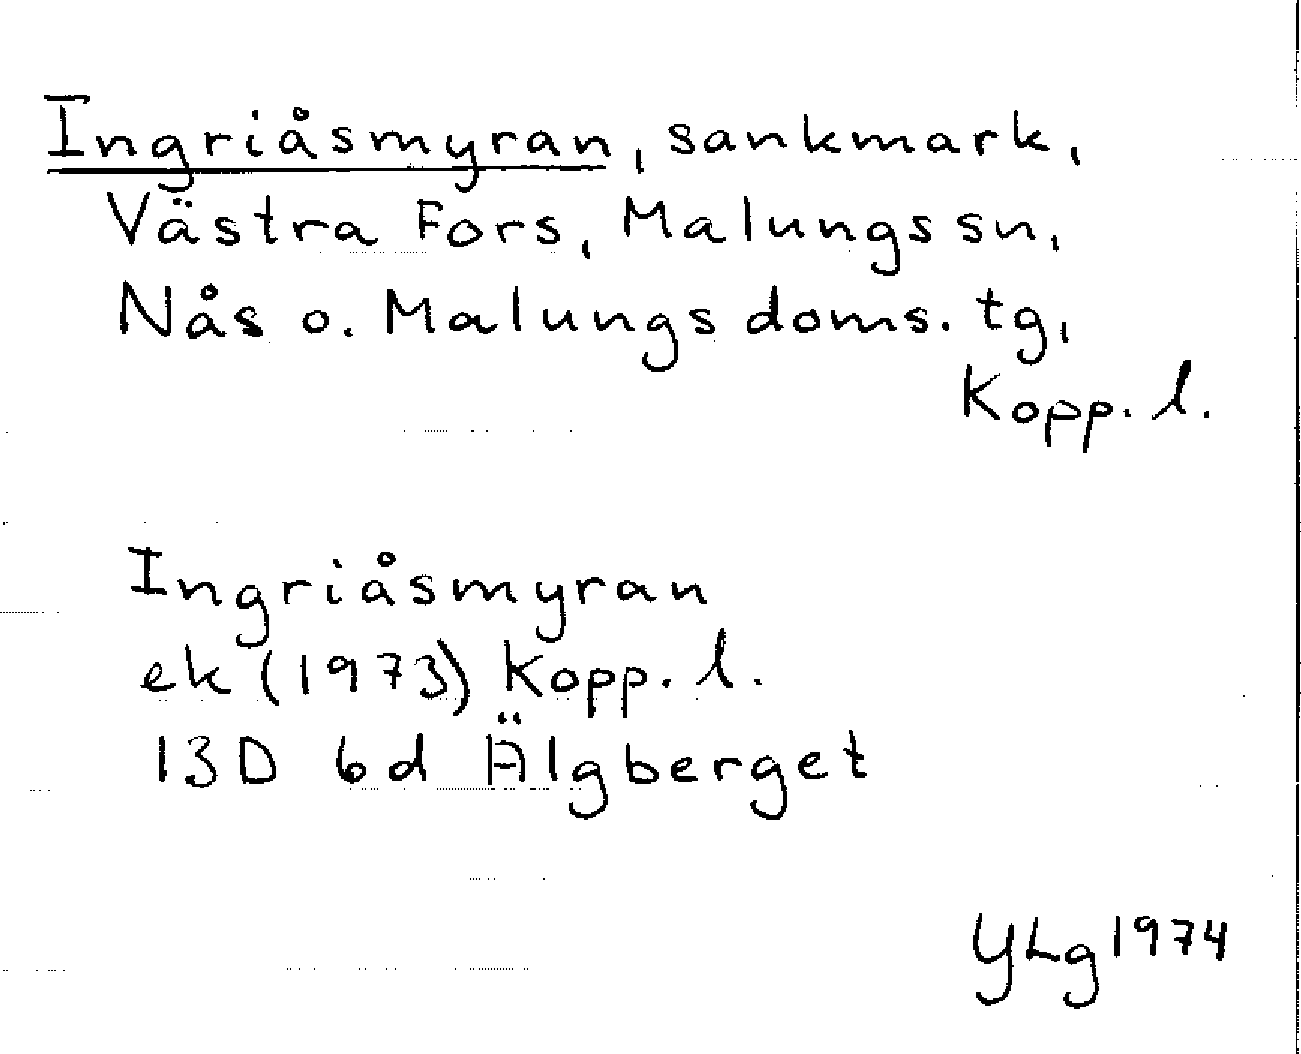 Ingriåsmyran, sankmark,
Västra Fors, Malungs sn,
Nås o. Malungs doms. tg,
Kopp. l.
Ingriåsmyran
ek (1973) Kopp. l.
13D 6d Älgberget
YLg 1974